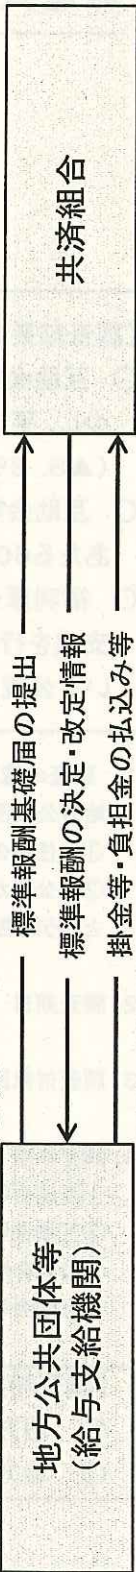 地方公共団体等
（給与支給機関）
標準報酬基礎届の提出
標準報酬の決定・改定情報
掛金等・負担金の払込み等
共済組合